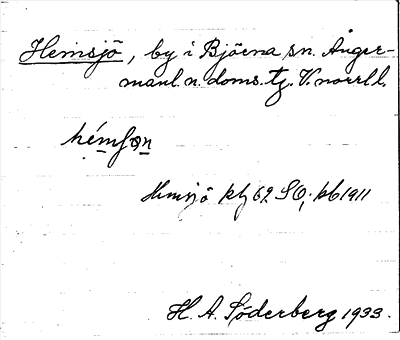 Hemsjö, by i Björna sn. Ånger-
manl. n. doms. tj. V. norrl. l.
Hemsjö kbl 62 SO; kb 1911
H. A. Söderberg 1933.